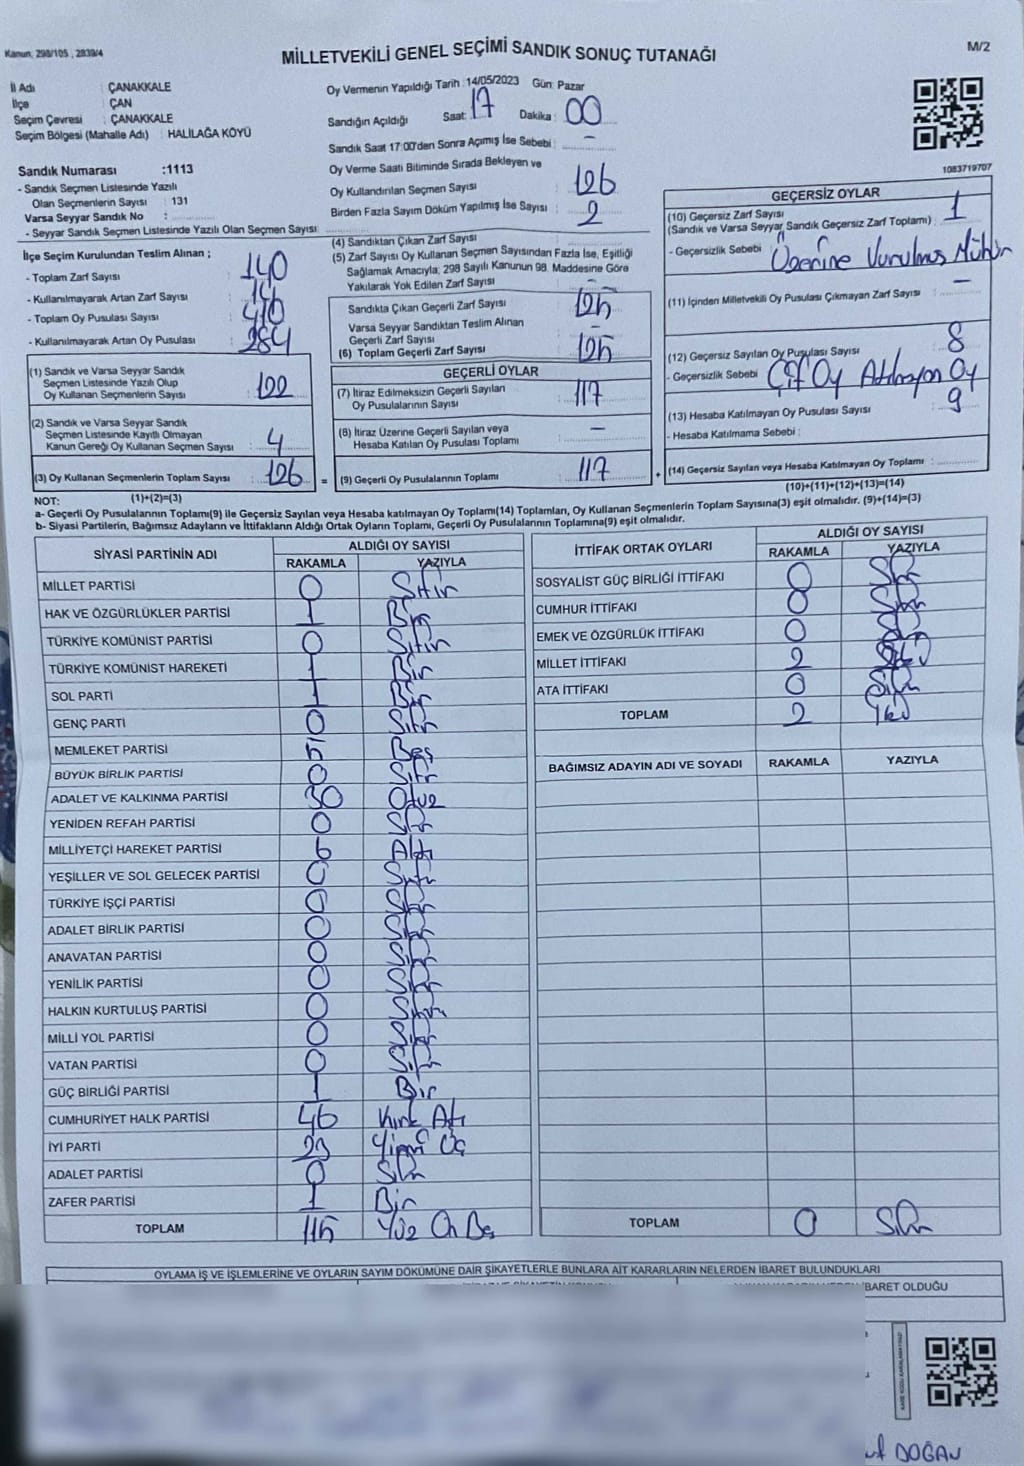 Kanun, 298/105 , 2839/4
MİLLETVEKİLİ GENEL SEÇİMİ SANDIK SONUÇ TUTANAĞI
M/2
İl Adı : ÇANAKKALE
İlçe : ÇAN
Seçim Çevresi : ÇANAKKALE
Seçim Bölgesi (Mahalle Adı) : HALİLAĞA KÖYÜ
Sandık Numarası :1113
- Sandık Seçmen Listesinde Yazılı
Olan Seçmenlerin Sayısı : 131
Varsa Seyyar Sandık No :
- Seyyar Sandık Seçmen Listesinde Yazılı Olan Seçmen Sayısı:
Oy Vermenin Yapıldığı Tarih :14/05/2023 Gün: Pazar
Sandığın Açıldığı Saat: 17 Dakika : 00
Sandık Saat 17:00'den Sonra Açımış İse Sebebi : -
Oy Verme Saati Bitiminde Sırada Bekleyen ve
Oy Kullandırılan Seçmen Sayısı 126
Birden Fazla Sayım Döküm Yapılmış İse Sayısı 2
1083719707
İlçe Seçim Kurulundan Teslim Alınan ;
- Toplam Zarf Sayısı 140
- Kullanılmayarak Artan Zarf Sayısı 14
- Toplam Oy Pusulası Sayısı 410
- Kullanılmayarak Artan Oy Pusulası 284
(1) Sandık ve Varsa Seyyar Sandık
Seçmen Listesinde Yazılı Olup
Oy Kullanan Seçmenlerin Sayısı : 122
(2) Sandık ve Varsa Seyyar Sandık
Seçmen Listesinde Kayıtlı Olmayan
Kanun Gereği Oy Kullanan Seçmen Sayısı : 4
(3) Oy Kullanan Seçmenlerin Toplam Sayısı : 126
(4) Sandıktan Çıkan Zarf Sayısı
(5) Zarf Sayısı Oy Kullanan Seçmen Sayısından Fazla İse, Eşitliği
Sağlamak Amacıyla; 298 Sayılı Kanunun 98. Maddesine Göre
Yakılarak Yok Edilen Zarf Sayısı -
Sandıkta Çıkan Geçerli Zarf Sayısı 125
Varsa Seyyar Sandıktan Teslim Alınan
Geçerli Zarf Sayısı -
(6) Toplam Geçerli Zarf Sayısı 125
GEÇERLİ OYLAR
(7) İtiraz Edilmeksizin Geçerli Sayılan
Oy Pusulalarının Sayısı 117
(8) İtiraz Üzerine Geçerli Sayılan veya
Hesaba Katılan Oy Pusulası Toplamı -
= (9) Geçerli Oy Pusulalarının Toplamı 117 +
GEÇERSİZ OYLAR
(10) Geçersiz Zarf Sayısı
(Sandık ve Varsa Seyyar Sandık Geçersiz Zarf Toplamı) : 1
- Geçersizlik Sebebi : Üzerine Vurulmuş Mühür
(11) İçinden Milletvekili Oy Pusulası Çıkmayan Zarf Sayısı : -
(12) Geçersiz Sayılan Oy Pusulası Sayısı 8
- Geçersizlik Sebebi : Çift Oy Atılmayan Oy
(13) Hesaba Katılmayan Oy Pusulası Sayısı 9
- Hesaba Katılmama Sebebi :
(14) Geçersiz Sayılan veya Hesaba Katılmayan Oy Toplamı :
NOT: (1)+(2)=(3)
(10)+(11)+(12)+(13)=(14)
a- Geçerli Oy Pusulalarının Toplamı(9) ile Geçersiz Sayılan veya Hesaba katılmayan Oy Toplamı(14) Toplamları, Oy Kullanan Seçmenlerin Toplam Sayısına(3) eşit olmalıdır. (9)+(14)=(3)
b- Siyasi Partilerin, Bağımsız Adayların ve İttifakların Aldığı Ortak Oyların Toplamı, Geçerli Oy Pusulalarının Toplamına(9) eşit olmalıdır.
SİYASİ PARTİNİN ADI ALDIĞI OY SAYISI
RAKAMLA YAZIYLA
MİLLET PARTİSİ 0 Sıfır
HAK VE ÖZGÜRLÜKLER PARTİSİ 1 Bir
TÜRKİYE KOMÜNİST PARTİSİ 0 Sıfır
TÜRKİYE KOMÜNİST HAREKETİ 1 Bir
SOL PARTİ 1 Bir
GENÇ PARTİ 0 Sıfır
MEMLEKET PARTİSİ 5 Beş
BÜYÜK BİRLİK PARTİSİ 0 Sıfır
ADALET VE KALKINMA PARTİSİ 30 Otuz
YENİDEN REFAH PARTİSİ 0 Sıfır
MİLLİYETÇİ HAREKET PARTİSİ 6 Altı
YEŞİLLER VE SOL GELECEK PARTİSİ 0 Sıfır
TÜRKİYE İŞÇİ PARTİSİ 0 Sıfır
ADALET BİRLİK PARTİSİ 0 Sıfır
ANAVATAN PARTİSİ 0 Sıfır
YENİLİK PARTİSİ 0 Sıfır
HALKIN KURTULUŞ PARTİSİ 0 Sıfır
MİLLİ YOL PARTİSİ 0 Sıfır
VATAN PARTİSİ 0 Sıfır
GÜÇ BİRLİĞİ PARTİSİ 1 Bir
CUMHURİYET HALK PARTİSİ 46 Kırk Altı
İYİ PARTİ 23 Yirmi Üç
ADALET PARTİSİ 0 Sıfır
ZAFER PARTİSİ 1 Bir
TOPLAM 115 Yüz On Beş
İTTİFAK ORTAK OYLARI ALDIĞI OY SAYISI
RAKAMLA YAZIYLA
SOSYALİST GÜÇ BİRLİĞİ İTTİFAKI 0 Sıfır
CUMHUR İTTİFAKI 0 Sıfır
EMEK VE ÖZGÜRLÜK İTTİFAKI 0 Sıfır
MİLLET İTTİFAKI 2 İki
ATA İTTİFAKI 0 Sıfır
TOPLAM 2 İki
BAĞIMSIZ ADAYIN ADI VE SOYADI RAKAMLA YAZIYLA
TOPLAM 0 Sıfır
OYLAMA İŞ VE İŞLEMLERİNE VE OYLARIN SAYIM DÖKÜMÜNE DAİR ŞİKAYETLERLE BUNLARA AİT KARARLARIN NELERDEN İBARET BULUNDUKLARI
İBARET OLDUĞU
DOĞAN